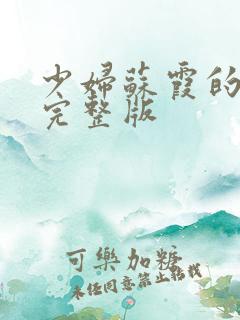 少婦蘇霞的
完整版
可樂加糖
未经同意禁止转载